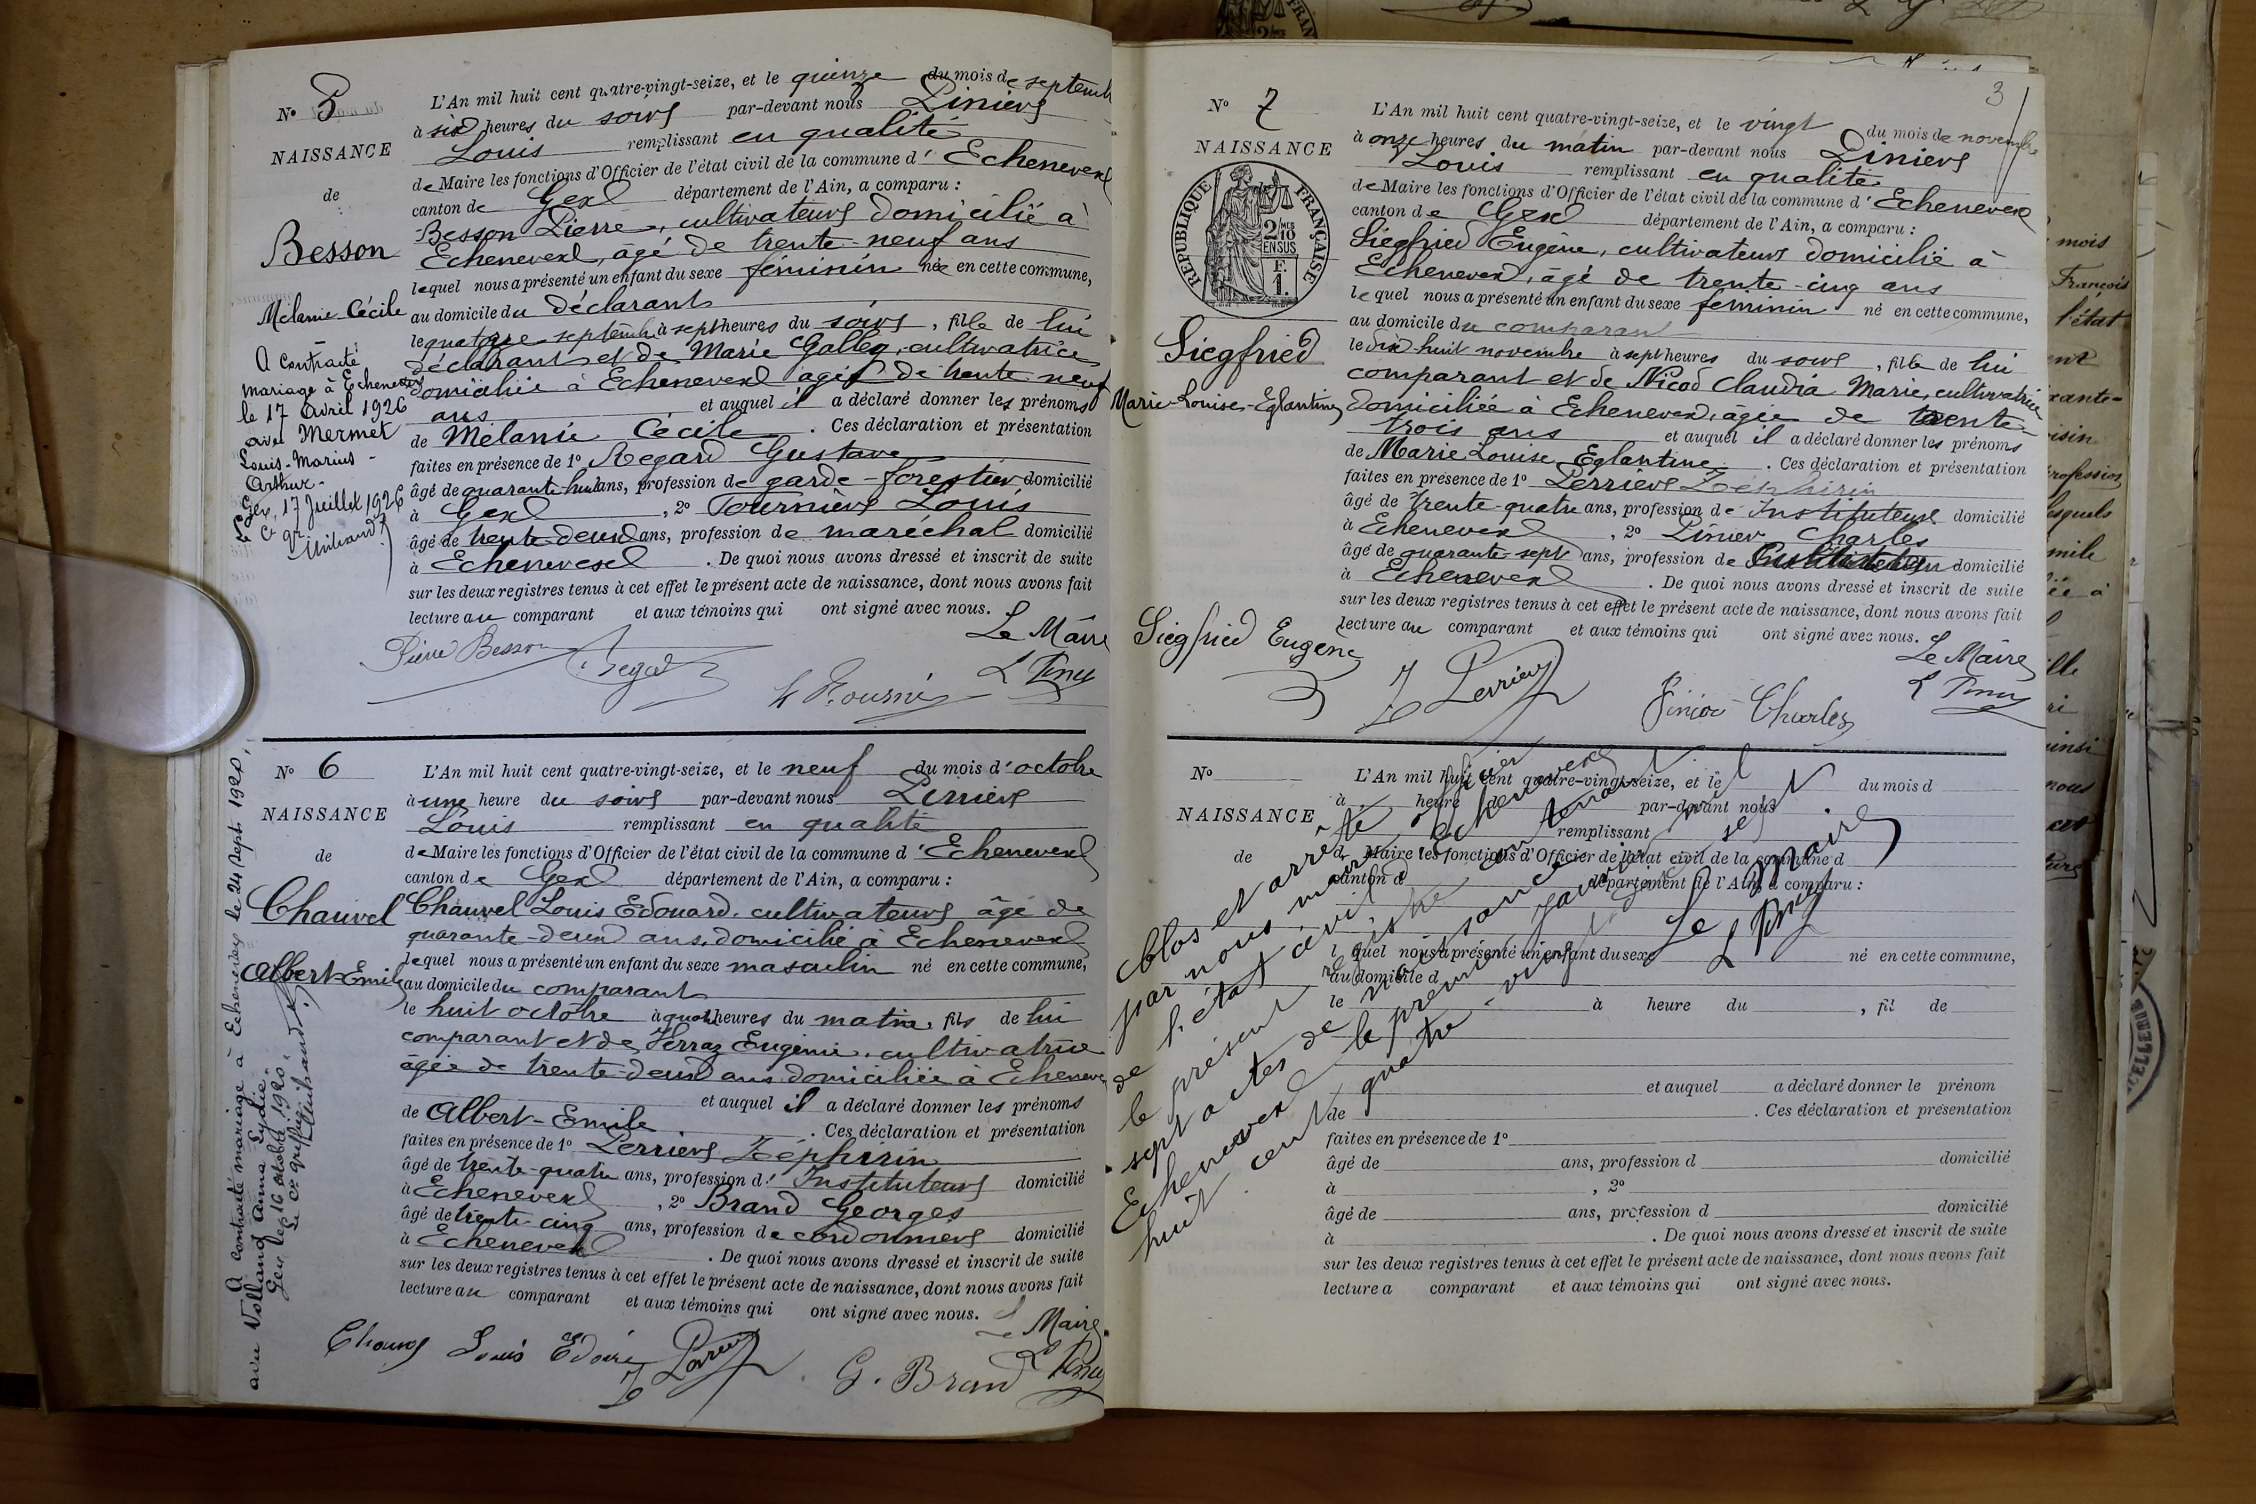 No 5
NAISSANCE
de
Besson
Mélanie-Cécile
A contracté
mariage à Echenevex
le 17 avril 1926
avec Mermet
Louis-Marius-
Arthur-
Gex, 17 Juillet 1926
L'An mil huit cent quatre-vingt-seize, et le quinze du mois de septembre
à six heures du soir par-devant nous Piniers
Louis remplissant en qualité
de Maire les fonctions d'Officier de l'état civil de la commune d'Echenevex
canton de Gex département de l'Ain, a comparu :
Besson Pierre, cultivateur domicilié à
Echenevex, âgé de trente-neuf ans
lequel nous a présenté un enfant du sexe féminin née en cette commune,
au domicile du déclarant
le quatorze septembre à sept heures du soir, fille de lui
déclarant et de Marie Gallay, cultivatrice
domiciliée à Echenevex âgée de trente-neuf
ans et auquel il a déclaré donner les prénoms
de Mélanie Cécile. Ces déclaration et présentation
faites en présence de 1o Regard Gustave
âgé de quarante-huit ans, profession de garde-forestier domicilié
à Gex, 2o Fournier Louis
âgé de trente-deux ans, profession de maréchal domicilié
à Echenevex. De quoi nous avons dressé et inscrit de suite
sur les deux registres tenus à cet effet le présent acte de naissance, dont nous avons fait
lecture au comparant et aux témoins qui ont signé avec nous.
Le Maire
Pierre Besson Regard L. Fournier L Piny
No 6
NAISSANCE
de
Chauvel
Albert-Emile
A contracté mariage à Echenevex le 24 Sept. 1920,
avec Volland Anna Lydie.
Gex le 16 octobre 1920.
Le Cis greffier
L'An mil huit cent quatre-vingt-seize, et le neuf du mois d'octobre
à une heure du soir par-devant nous Perriers
Louis remplissant en qualité
de Maire les fonctions d'Officier de l'état civil de la commune d'Echenevex
canton de Gex département de l'Ain, a comparu :
Chauvel Louis Edouard, cultivateur âgé de
quarante-deux ans, domicilié à Echenevex
lequel nous a présenté un enfant du sexe masculin né en cette commune,
au domicile du comparant
le huit octobre à quatre heures du matin, fils de lui
comparant et de Ferraz Eugénie, cultivatrice
âgée de trente-deux ans domiciliée à Echenevex
et auquel il a déclaré donner les prénoms
de Albert-Emile. Ces déclaration et présentation
faites en présence de 1o Perriers Zéphirin
âgé de trente-quatre ans, profession d'Instituteur domicilié
à Echenevex, 2o Brand Georges
âgé de trente-cinq ans, profession de cordonniers domicilié
à Echenevex. De quoi nous avons dressé et inscrit de suite
sur les deux registres tenus à cet effet le présent acte de naissance, dont nous avons fait
lecture au comparant et aux témoins qui ont signé avec nous.
Le Maire
Chauvel Louis Edouard Z Perrier G. Brand L Piny
3
No 7
NAISSANCE
RÉPUBLIQUE FRANÇAISE
2/10 MES
EN SUS
F.
1.
Siegfried
Marie-Louise-Eglantine
L'An mil huit cent quatre-vingt-seize, et le vingt du mois de novembre
à onze heures du matin par-devant nous Piniers
Louis remplissant en qualité
de Maire les fonctions d'Officier de l'état civil de la commune d'Echenevex
canton de Gex département de l'Ain, a comparu :
Siegfried Eugène, cultivateur domicilié à
Echenevex, âgé de trente-cinq ans
lequel nous a présenté un enfant du sexe féminin né en cette commune,
au domicile du comparant
le dix-huit novembre à sept heures du soir, fille de lui
comparant et de Nicod Claudia Marie, cultivatrice
domiciliée à Echenevex, âgée de trente-
trois ans et auquel il a déclaré donner les prénoms
de Marie Louise Eglantine. Ces déclaration et présentation
faites en présence de 1o Perriers Zéphirin
âgé de trente-quatre ans, profession de Instituteur domicilié
à Echenevex, 2o Pinier Charles
âgé de quarante-sept ans, profession de domicilié
à Echenevex. De quoi nous avons dressé et inscrit de suite
sur les deux registres tenus à cet effet le présent acte de naissance, dont nous avons fait
lecture au comparant et aux témoins qui ont signé avec nous.
Le Maire
Siegfried Eugène Z Perrier Pinier Charles L Piny
No
NAISSANCE
de
L'An mil huit cent quatre-vingt-seize, et le du mois d
à heure d par-devant nous
remplissant
d Maire les fonctions d'Officier de l'état civil de la commune d
canton d département de l'Ain, a comparu :
l quel nous a présenté un enfant du sexe né en cette commune,
au domicile d
le à heure du , fil de
et auquel a déclaré donner le prénom
de . Ces déclaration et présentation
faites en présence de 1o
âgé de ans, profession d domicilié
à , 2o
âgé de ans, profession d domicilié
à . De quoi nous avons dressé et inscrit de suite
sur les deux registres tenus à cet effet le présent acte de naissance, dont nous avons fait
lecture a comparant et aux témoins qui ont signé avec nous.
Clos et arrêté
par nous maire officier
de l'état civil d'Echenevex
le présent registre contenant
sept actes de naissance
Echenevex le premier janvier mil
huit cent quatre-vingt-dix-sept
Le Maire
L Piny
mois
François
l'état
profession
lesquels
ainsi
nous